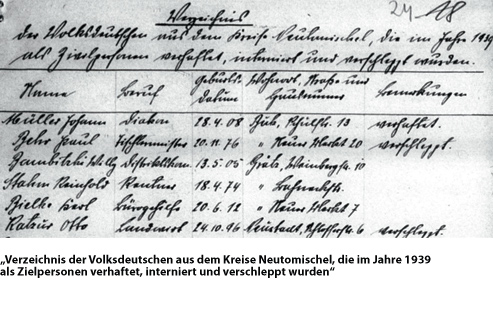 24 18
Verzeichnis
der Volksdeutschen aus dem Kreise Neutomischel, die im Jahre 1939
als Zivilpersonen verhaftet, interniert und verschleppt wurden.
Name Beruf Geburts- Datum Wohnort, Straße und Hausnummer Bemerkungen
Müller Johann Diakon 28.4.08 13 verhaftet.
Behr Paul Tischlermeister 20.11.76 " Neuer Markt 20 verschleppt.
Willy 13.5.05 Grätz, 10
Stahn Reinhold Rentner 18.4.74 " Bahnhofstr.
Bielke Karl Bürogehilfe 20.6.12 " Neuer Markt 7
Otto Landwirt 24.10.96 Neustadt, 6 verschleppt.
„Verzeichnis der Volksdeutschen aus dem Kreise Neutomischel, die im Jahre 1939
als Zielpersonen verhaftet, interniert und verschleppt wurden“